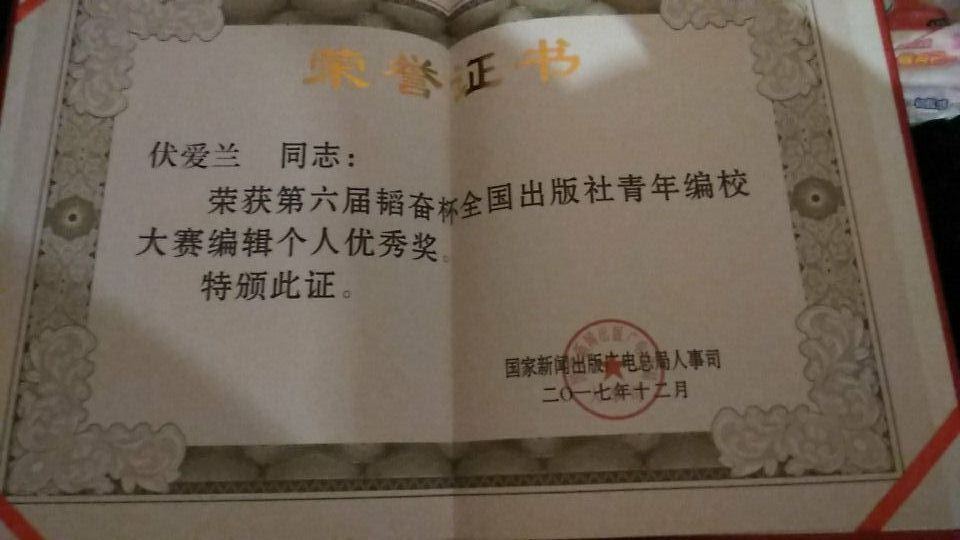 荣誉证书
伏爱兰 同志：
荣获第六届韬奋杯全国出版社青年编校
大赛编辑个人优秀奖。
特颁此证。
国家新闻出版广电总局人事司
二〇一七年十二月